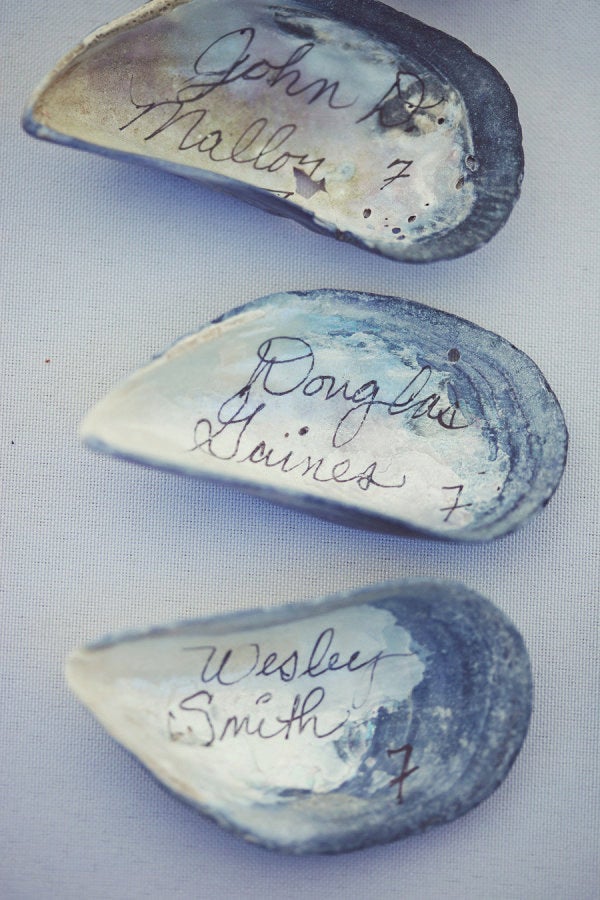 John D.
Malloy 7
Douglas
Gaines 7
Wesley
Smith
7